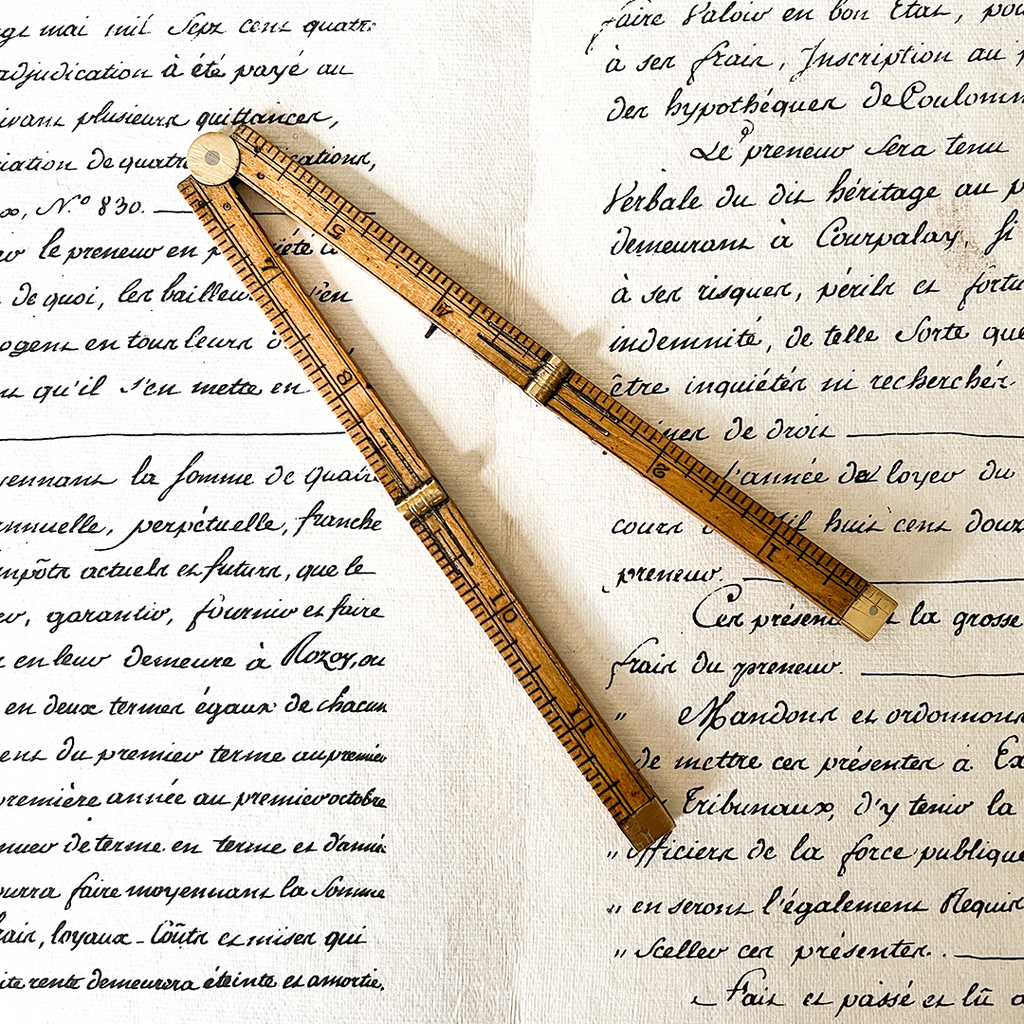 mai mil Sept cent quatre
adjudication à été payé au
plusieurs quittances,
de quatre
N.° 830.
le preneur en
de quoi, les bailleurs s'en
en tout leurs
qu'il s'en mette en
la somme de quatre
perpétuelle, franche
impôts actuels et futurs, que le
garantir, fournir et faire
en leur Demeure à Rozoy, ou
en deux termes égaux de chacun
du premier terme au premier
première année au premier octobre
de terme en terme et d'année
faire moyennant la Somme
loyaux - Coûts et mises qui
rente demeurera éteinte et amortie.
faire Valoir en bon État,
à ses frais, Inscription au
des hypothèques de
Le preneur Sera tenu
Verbale du dit héritage au
demeurant à Courpalay, Si
à ses risques, périls et
indemnité, de telle Sorte que
être inquiétés ni recherchés
de droit
l'année de loyer du
cours huit cent
preneur.
Ces la grosse
frais du preneur.
" Mandons et ordonnons
de mettre ces présentes à
Tribunaux, d'y tenir la
" officiers de la force publique
" en seront légalement
" Sceller ces présentes.
Fait et passé et lû
5
4
2
1
7
8
10
11